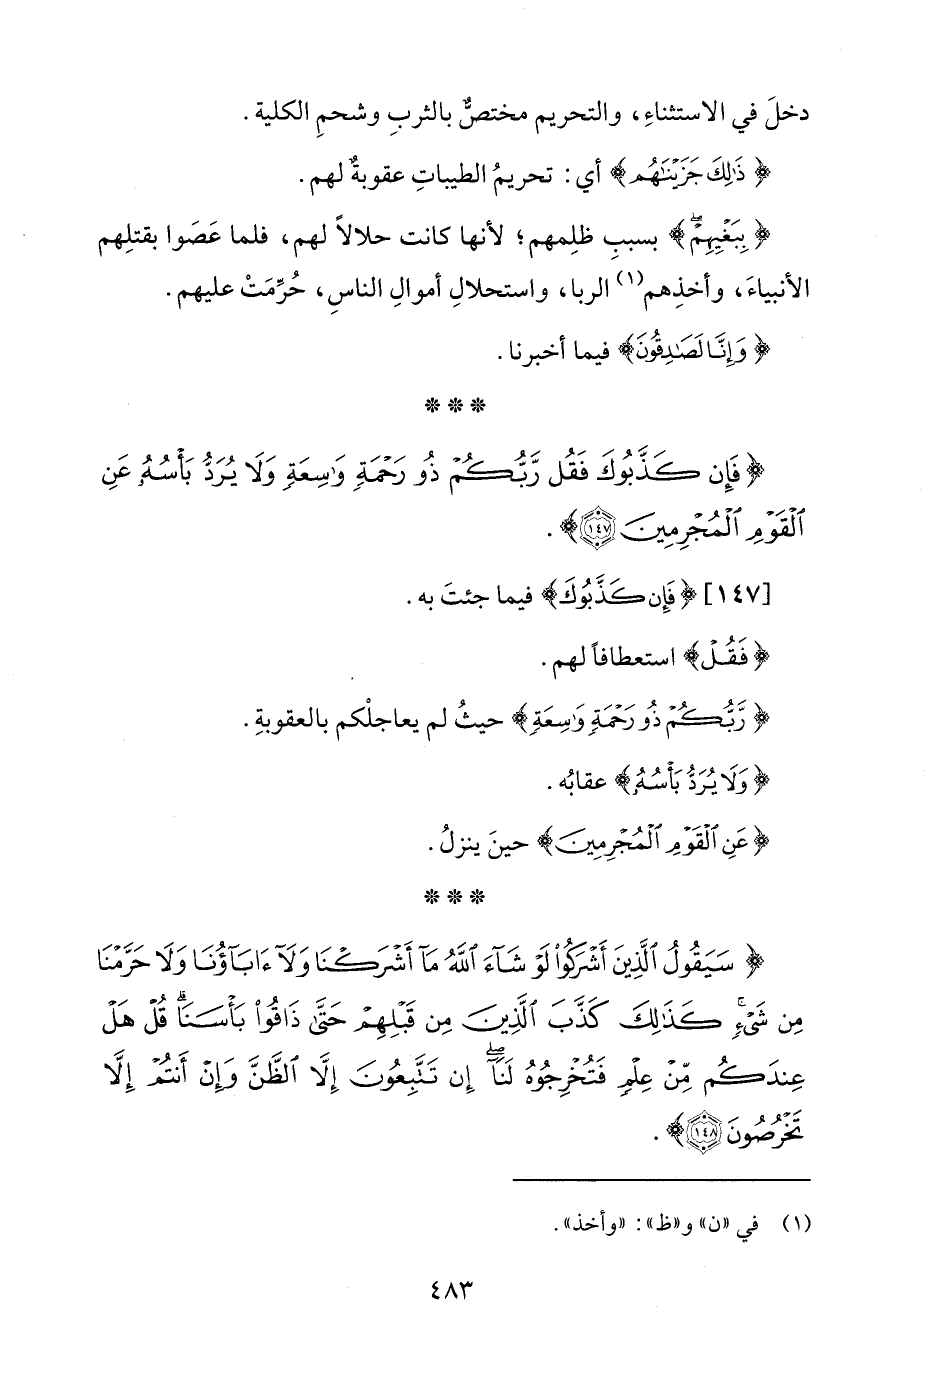 دخلَ في الاستثناءِ، والتحريم مختصٌّ بالثربِ وشحمِ الكلية.
﴿ذَٰلِكَ جَزَيْنَٰهُم﴾ أي: تحريمُ الطيباتِ عقوبةٌ لهم.
﴿بِبَغْيِهِمْ ۖ﴾ بسببِ ظلِمهم؛ لأنها كانت حلالاً لهم، فلما عَصَوا بقتلِهم
الأنبياءَ، وأخذِهم(١) الربا، واستحلالِ أموالِ الناسِ، حُرِّمَتْ عليهم.
﴿وَإِنَّا لَصَٰدِقُونَ﴾ فيما أخبرنا.
* * *
﴿فَإِن كَذَّبُوكَ فَقُل رَّبُّكُمْ ذُو رَحْمَةٍ وَٰسِعَةٍ وَلَا يُرَدُّ بَأْسُهُۥ عَنِ
ٱلْقَوْمِ ٱلْمُجْرِمِينَ ١٤٧﴾.
[١٤٧] ﴿فَإِن كَذَّبُوكَ﴾ فيما جئتَ به.
﴿فَقُلْ﴾ استعطافاً لهم.
﴿رَّبُّكُمْ ذُو رَحْمَةٍ وَٰسِعَةٍ﴾ حيثُ لم يعاجلْكم بالعقوبةِ.
﴿وَلَا يُرَدُّ بَأْسُهُۥ﴾ عقابُه.
﴿عَنِ ٱلْقَوْمِ ٱلْمُجْرِمِينَ﴾ حينَ ينزلُ.
* * *
﴿سَيَقُولُ ٱلَّذِينَ أَشْرَكُوا۟ لَوْ شَآءَ ٱللَّهُ مَآ أَشْرَكْنَا وَلَآ ءَابَآؤُنَا وَلَا حَرَّمْنَا
مِن شَىْءٍ ۚ كَذَٰلِكَ كَذَّبَ ٱلَّذِينَ مِن قَبْلِهِمْ حَتَّىٰ ذَاقُوا۟ بَأْسَنَا ۗ قُلْ هَلْ
عِندَكُم مِّنْ عِلْمٍ فَتُخْرِجُوهُ لَنَآ ۖ إِن تَتَّبِعُونَ إِلَّا ٱلظَّنَّ وَإِنْ أَنتُمْ إِلَّا
تَخْرُصُونَ ١٤٨﴾.
(١) في «ن» و«ظ»: «وأخذ».
٤٨٣